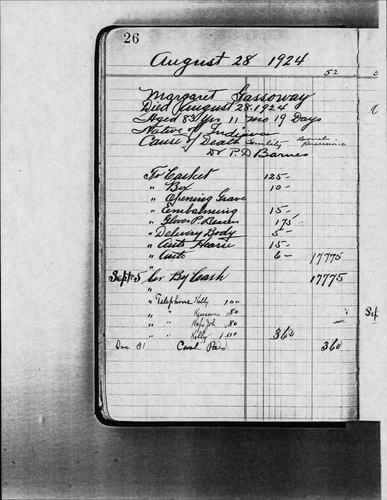 26
August 28 1924
52
Margaret Gassoway
Died August 28 1924
Aged 83 Yrs 11 mo 19 Days
Native of Indiana
Cause of Death Senility
Dr P. D Barnes
To Casket 125-
" Box 10-
" Opening Grave
" Embalming 15-
" Gloves P. Bearers 175
" Delivery Body 5-
" Auto Hearse 15-
" Auto 6- 17775
"
Sept 5 Cr By Cash 17775
"
" Telephone Kelly 1.00
" " .80
" " .80
" " Kelly 1.00 360
Dec 31 Paid 360